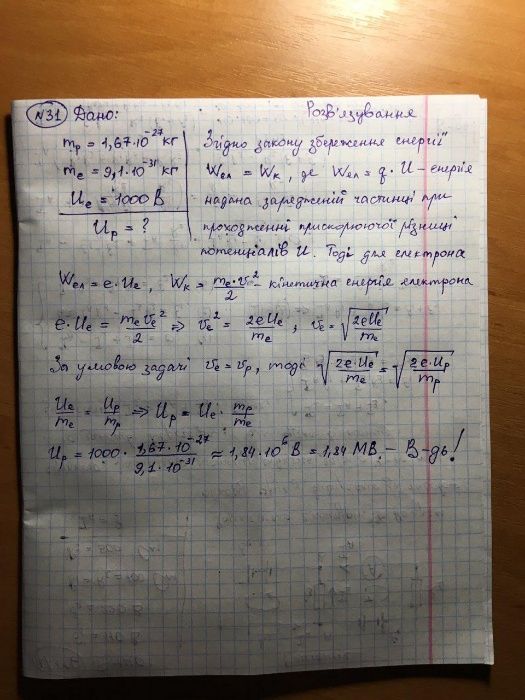 №31 Дано:
Розв'язування
mp = 1,67·10⁻²⁷ кг
me = 9,1·10⁻³¹ кг
Ue = 1000 В
Up = ?
Згідно закону збереження енергії
Wел = Wк, де Wел = q·U – енергія
надана зарядженій частинці при
проходженні прискорюючої різниці
потенціалів U. Тоді для електрона
Wел = e·Ue, Wк = me·v²/2 - кінетична енергія електрона
e·Ue = meve²/2 => ve² = 2eUe/me; ve = √(2eUe/me)
За умовою задачі ve = vp, тоді √(2e·Ue/me) = √(2e·Up/mp)
Ue/me = Up/mp => Up = Ue · mp/me
Up = 1000 · 1,67·10⁻²⁷/9,1·10⁻³¹ ≈ 1,84·10⁶ В = 1,84 МВ. – В-дь!